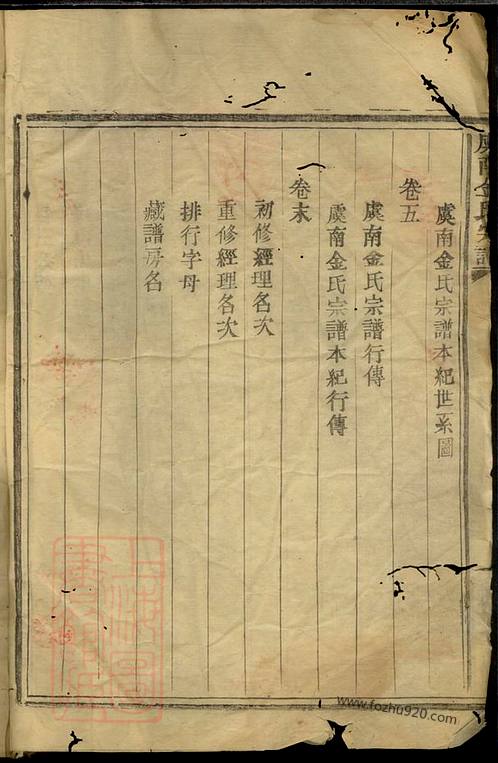 虞南金氏宗譜
虞南金氏宗譜本紀世系圖
卷五
虞南金氏宗譜行傳
虞南金氏宗譜本紀行傳
卷末
初修經理名次
重修經理名次
排行字母
藏譜房名
www.fozhu920.com